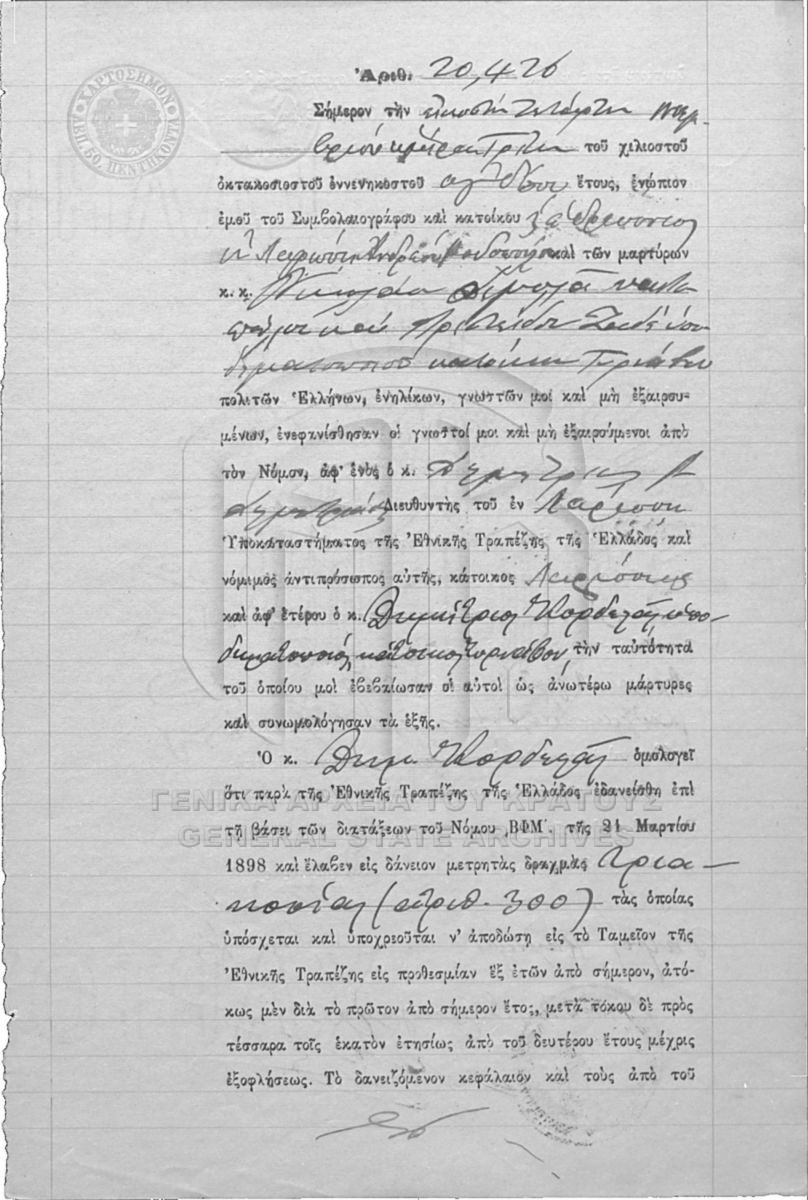 ΧΑΡΤΟΣΗΜΟΝ
ΛΕΠΤ. 50. ΠΕΝΤΗΚΟΝΤΑ
Ἀριθ. 20,426
Σήμερον τὴν εἰκοστὴν τετάρτην Νοεμ-
βρίου ἡμέραν Τρίτην τοῦ χιλιοστοῦ
ὀκτακοσιοστοῦ ἐννενηκοστοῦ ὀγδόου ἔτους, ἐνώπιον
ἐμοῦ τοῦ Συμβολαιογράφου καὶ κατοίκου
Λαρίσσης Ἀνδρέου καὶ τῶν μαρτύρων
κ. κ. Νικολάου
καὶ Ἀριστείδου
κατοίκων Τυρνάβου
πολιτῶν Ἑλλήνων, ἐνηλίκων, γνωστῶν μοι καὶ μὴ ἐξαιρου-
μένων, ἐνεφανίσθησαν οἱ γνωστοί μοι καὶ μὴ ἐξαιρούμενοι ἀπὸ
τὸν Νόμον, ἀφ' ἑνὸς ὁ κ. Δημήτριος
Διευθυντὴς τοῦ ἐν Λαρίσσῃ
Ὑποκαταστήματος τῆς Ἐθνικῆς Τραπέζης τῆς Ἑλλάδος καὶ
νόμιμος ἀντιπρόσωπος αὐτῆς, κάτοικος Λαρίσσης
καὶ ἀφ' ἑτέρου ὁ κ. Δημήτριος Κορδελᾶς ὑπο-
δηματοποιὸς κάτοικος Τυρνάβου, τὴν ταὐτότητα
τοῦ ὁποίου μοὶ ἐβεβαίωσαν οἱ αὐτοὶ ὡς ἀνωτέρω μάρτυρες
καὶ συνωμολόγησαν τὰ ἑξῆς.
Ὁ κ. Δημ. Κορδελᾶς ὁμολογεῖ
ὅτι παρὰ τῆς Ἐθνικῆς Τραπέζης τῆς Ἑλλάδος ἐδανείσθη ἐπὶ
ΓΕΝΙΚΑ ΑΡΧΕΙΑ ΤΟΥ ΚΡΑΤΟΥΣ
τῇ βάσει τῶν διατάξεων τοῦ Νόμου ͵ΒΦΜ΄. τῆς 21 Μαρτίου
GENERAL STATE ARCHIVES
1898 καὶ ἔλαβεν εἰς δάνειον μετρητὰς δραχμὰς τρια-
κοσίας (ἀριθ. 300) τὰς ὁποίας
ὑπόσχεται καὶ ὑποχρεοῦται ν' ἀποδώσῃ εἰς τὸ Ταμεῖον τῆς
Ἐθνικῆς Τραπέζης εἰς προθεσμίαν ἓξ ἐτῶν ἀπὸ σήμερον, ἀτό-
κως μὲν διὰ τὸ πρῶτον ἀπὸ σήμερον ἔτος, μετὰ τόκου δὲ πρὸς
τέσσαρα τοῖς ἑκατὸν ἐτησίως ἀπὸ τοῦ δευτέρου ἔτους μέχρις
ἐξοφλήσεως. Τὸ δανειζόμενον κεφάλαιον καὶ τοὺς ἀπὸ τοῦ